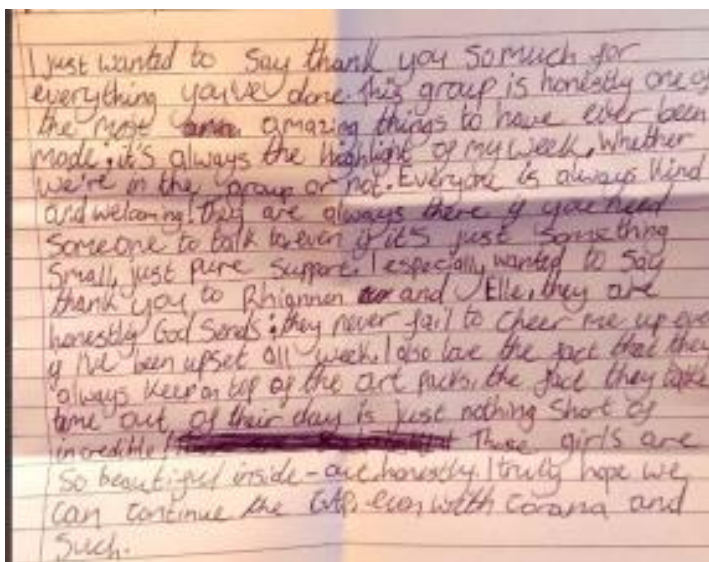 I just wanted to say thank you so much for
everything you've done. This group is honestly one of
the most amazing things to have ever been
made; it's always the highlight of my week, whether
we're in the group or not. Everyone is always kind
and welcoming! They are always there if you need
someone to talk to even if it's just something
small, just pure support. I especially wanted to say
thank you to Rhiannon and Elle, they are
honestly God Sends; they never fail to cheer me up even
if I've been upset all week. I also love the fact that they
always keep on top of the art packs, the fact they take
time out of their day is just nothing short of
incredible! These girls are
so beautiful inside-out honestly. I truly hope we
can continue the even with Corona and
such.